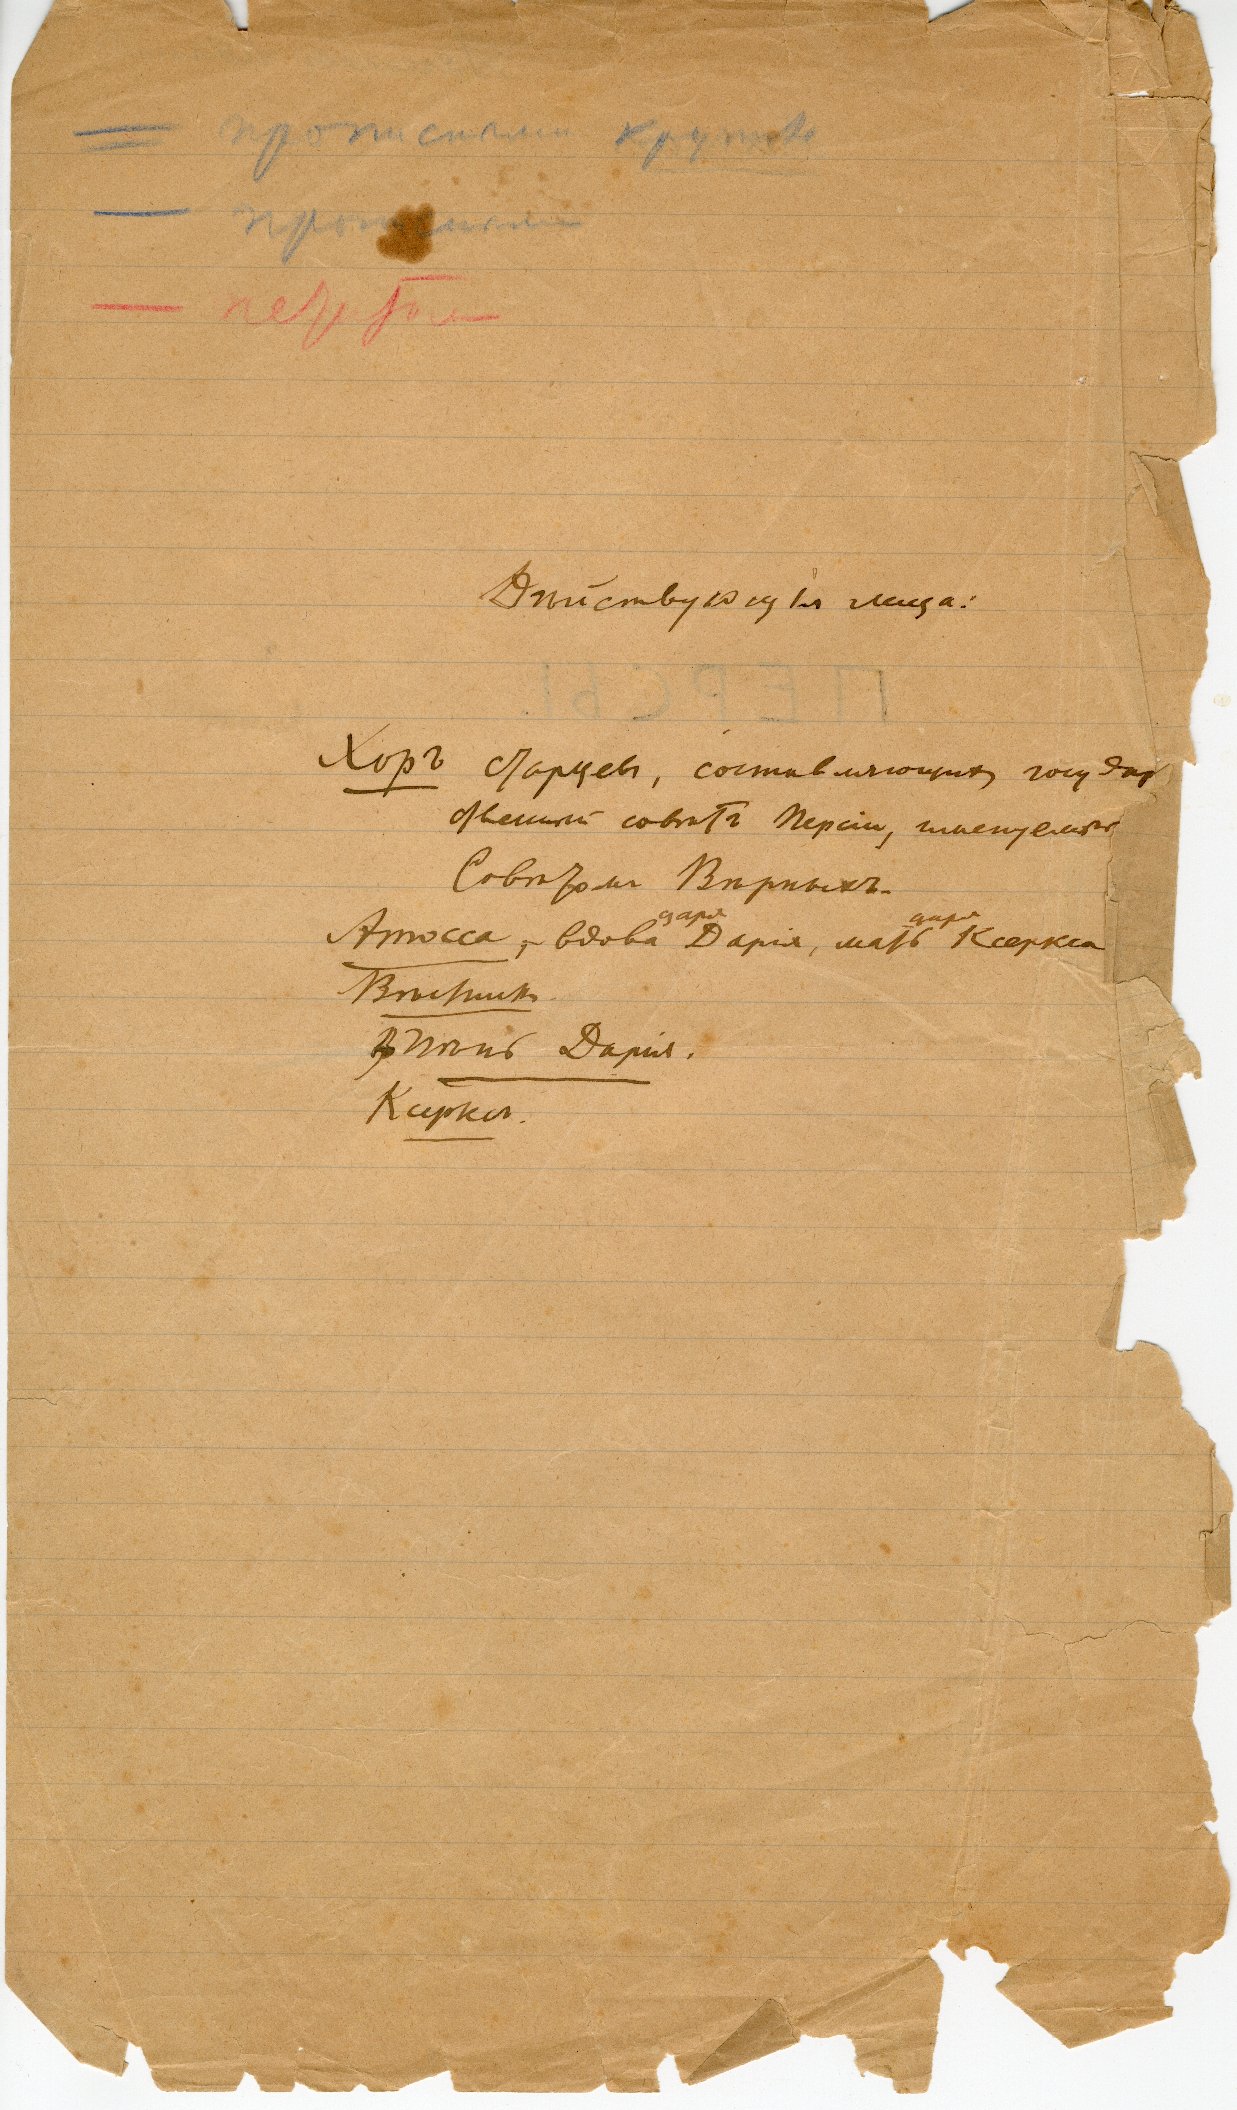 = прописными крупно
— прописными
— петитом
Дѣйствующія лица:
ПЕРСЫ
Хоръ старцевъ, составляющихъ государ
ственный совѣтъ Персіи, именуемый
Совѣтомъ Вѣрныхъ.
царя царя
Атосса, – вдова Дарія, мать Ксеркса
Вѣстникъ.
Тѣнь Дарія.
Ксерксъ.